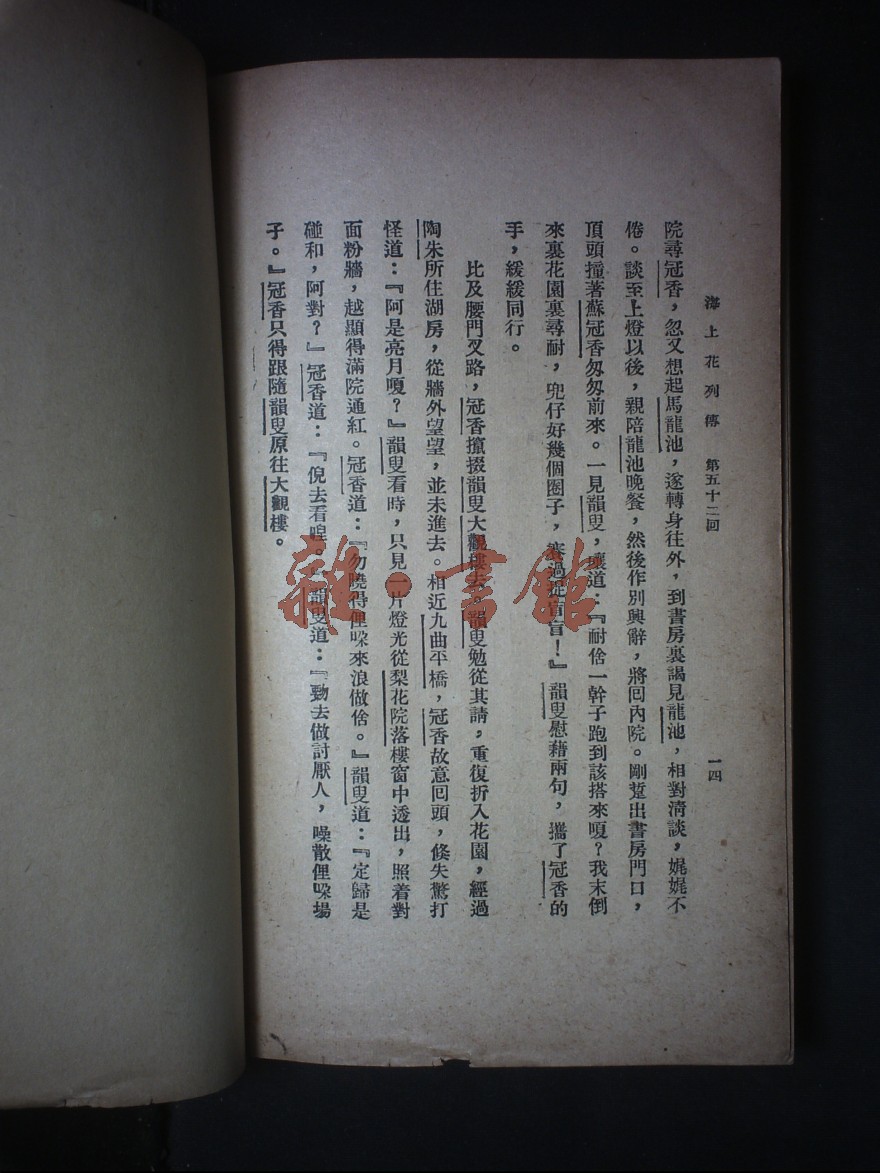 海上花列傳　第五十二回
一四
院尋冠香，忽又想起馬龍池，遂轉身往外，到書房裏謁見龍池，相對淸談，娓娓不
倦。談至上燈以後，親陪龍池晚餐，然後作別興辭，將回內院。剛踅出書房門口，
頂頭撞著蘇冠香匆匆前來。一見韻叟，嚷道：『耐倽一幹子跑到該搭來嗄？我末倒
來裏花園裏尋耐，兜仔好幾個圈子，賽過捉盲盲！』韻叟慰藉兩句，攜了冠香的
手，緩緩同行。
比及腰門叉路，冠香攛掇韻叟大觀樓去。韻叟勉從其請，重復折入花園，經過
陶朱所住湖房，從牆外望望，並未進去。相近九曲平橋，冠香故意回頭，倏失驚打
怪道：『阿是亮月嗄？』韻叟看時，只見一片燈光從梨花院落樓窗中透出，照着對
面粉牆，越顯得滿院通紅。冠香道：『勿曉得俚哚來浪做倽。』韻叟道：『定歸是
碰和，阿對？』冠香道：『倪去看喤。』韻叟道：『覅去做討厭人，噪散俚哚場
子。』冠香只得跟隨韻叟原往大觀樓。
雜·書館